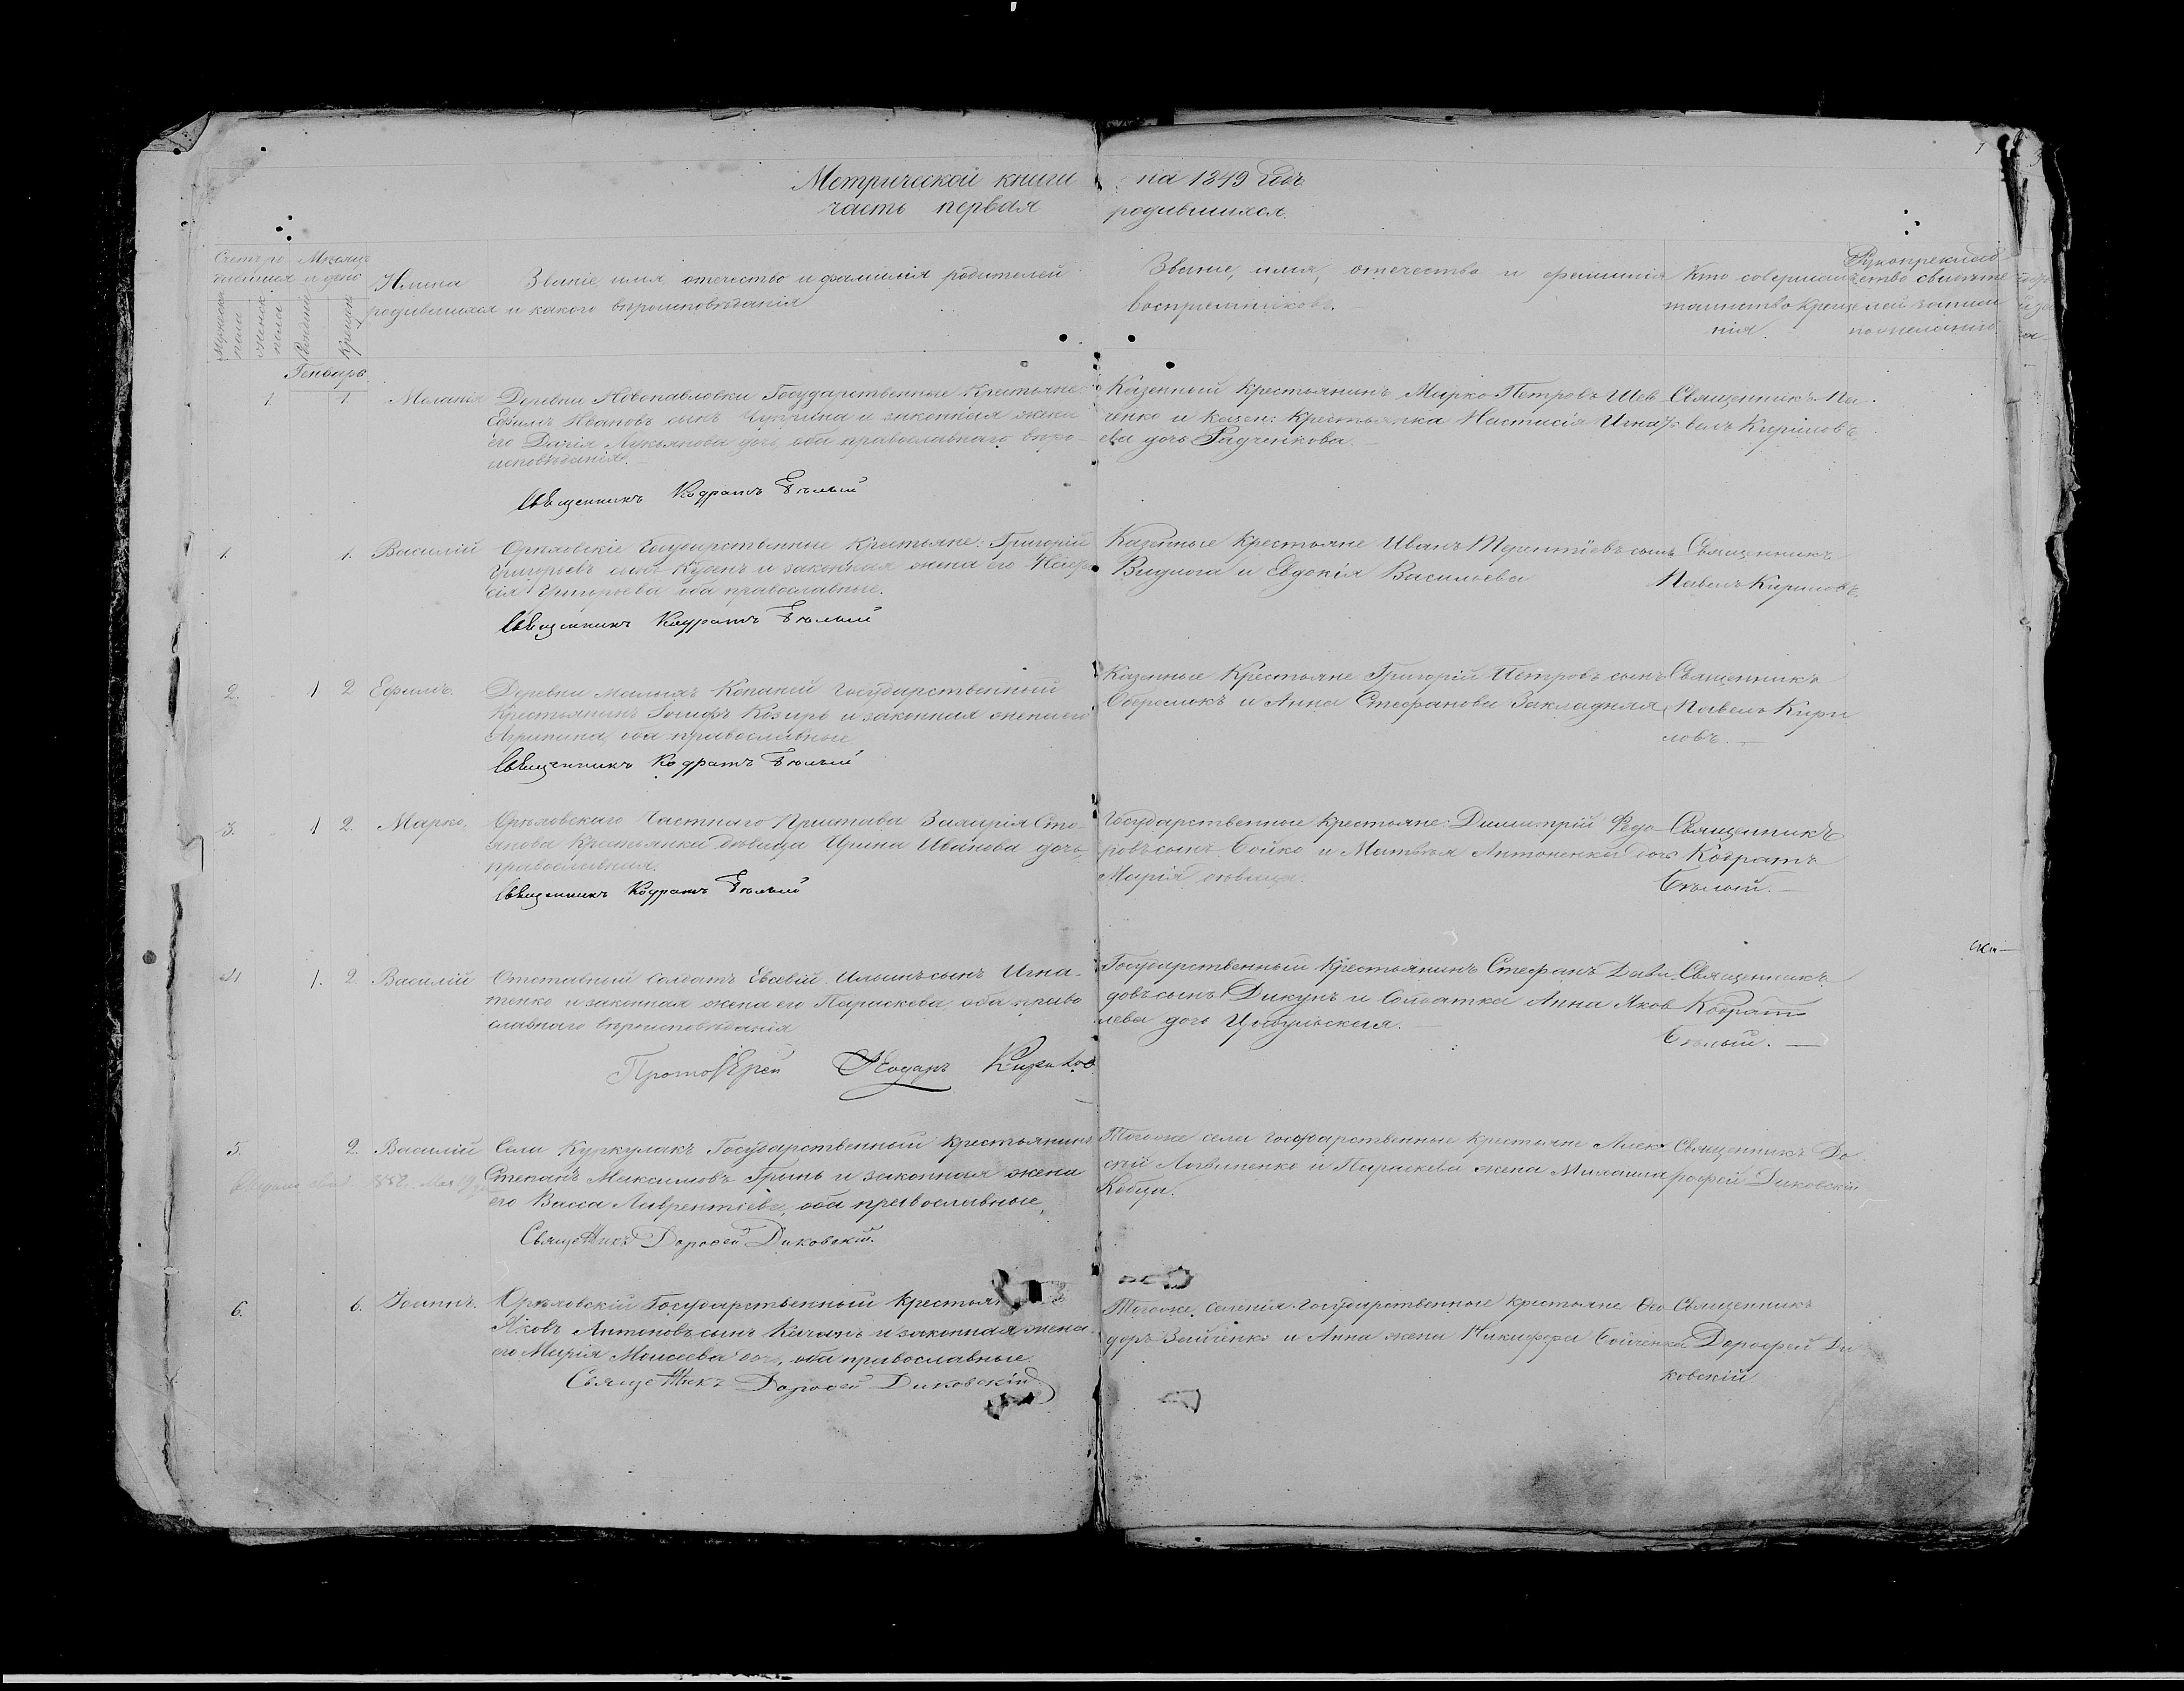 Метрической книги на 1849 годъ
часть первая родившихся.
Счетъ ро Мѣсяцъ
дившихся и день
Имена Званіе, имя, отечество и фамилія родителей
родившихся и какого вѣроисповѣданія
Мужеска пола
женск. пола
Рожденія
Крещен.
Званіе, имя, отечество и фамилія
воспріемниковъ.
Кто совершалъ
таинство креще
нія
Рукоприклад
ство свидѣте
лей записи
по желанію
Генварь
1. 1 Меланія Деревни Новопавловки Государственные Крестьяне:
Ефимъ Ивановъ сынъ Чуприна и законная жена
его Дарія Лукьянова дочь, оба православнаго вѣро-
исповѣданія.
Священникъ Кодратъ Бѣлый
Казенный крестьянинъ Марко Петровъ Шев
ченко и казен: крестьянка Настасія Игнать
ева дочь Радченкова.
Священникъ Па
велъ Кириловъ
1. 1. Василій Орѣховскіе Государственные Крестьяне: Григорій
Григорьевъ сынъ и законная жена его
сія Григорьева оба православные.
Священникъ Кодратъ Бѣлый
Казенные Крестьяне Иванъ Терентіевъ сынъ
Видлога и Евдокія Васильева
Священникъ
Павелъ Кириловъ.
2. 1 2 Ефимъ. Деревни Малыхъ Копаній Государственный
Крестьянинъ Іосифъ Козирь и законная жена его
Агрипина, оба православные
Священникъ Кодратъ Бѣлый
Казенные Крестьяне Григорій Петровъ сынъ
и Анна Стефанова Закладная
Священникъ
Павелъ Кири
ловъ.
3. 1 2. Марко. Орѣховскаго Частнаго Пристава Захарія Сто-
янова Крестьянка дѣвица Ирина Иванова дочь,
православная.
Священникъ Кодратъ Бѣлый
Государственные Крестьяне: Димитрій Федо
ровъ сынъ Бойко и Матвѣя Антоненка дочь
Марія дѣвица.
Священникъ
Кодратъ
Бѣлый.
4 1. 2 Василій Отставный Солдатъ Евсевій Ильинъ сынъ Игна-
тенко и законная жена его Параскова, оба право
славнаго вѣроисповѣданія
Протоіерей Кирилов
Государственный Крестьянинъ Стефанъ Дави
довъ сынъ Дикунъ и Солдатка Анна Яков
лева дочь Цыбульская.
Священникъ
Кодратъ
Бѣлый.
5. 2. Василій Села Куркулакъ Государственный крестьянинъ
Степанъ Максимовъ Гринь и законная жена
его Васса Лаврентіева, оба православные
Священникъ Дорофей Диковскій.
Тогоже села государственные крестьяне Алек
сѣй Логвиненко и Параскева жена
Кобца.
Священникъ До
рофей Диковскій
6. 6. Іоаннъ. Орѣховскій Государственный крестьян
Яковъ Антоновъ сынъ Качанъ и законная жена
его Марія Моисеева дочь, оба православные.
Священникъ Дорофей Диковскій
Тогоже селенія государственные крестьяне Ѳео
доръ Зайченко и Анна жена Никифора Бойченка
Священникъ
Дорофей Ди
ковскій